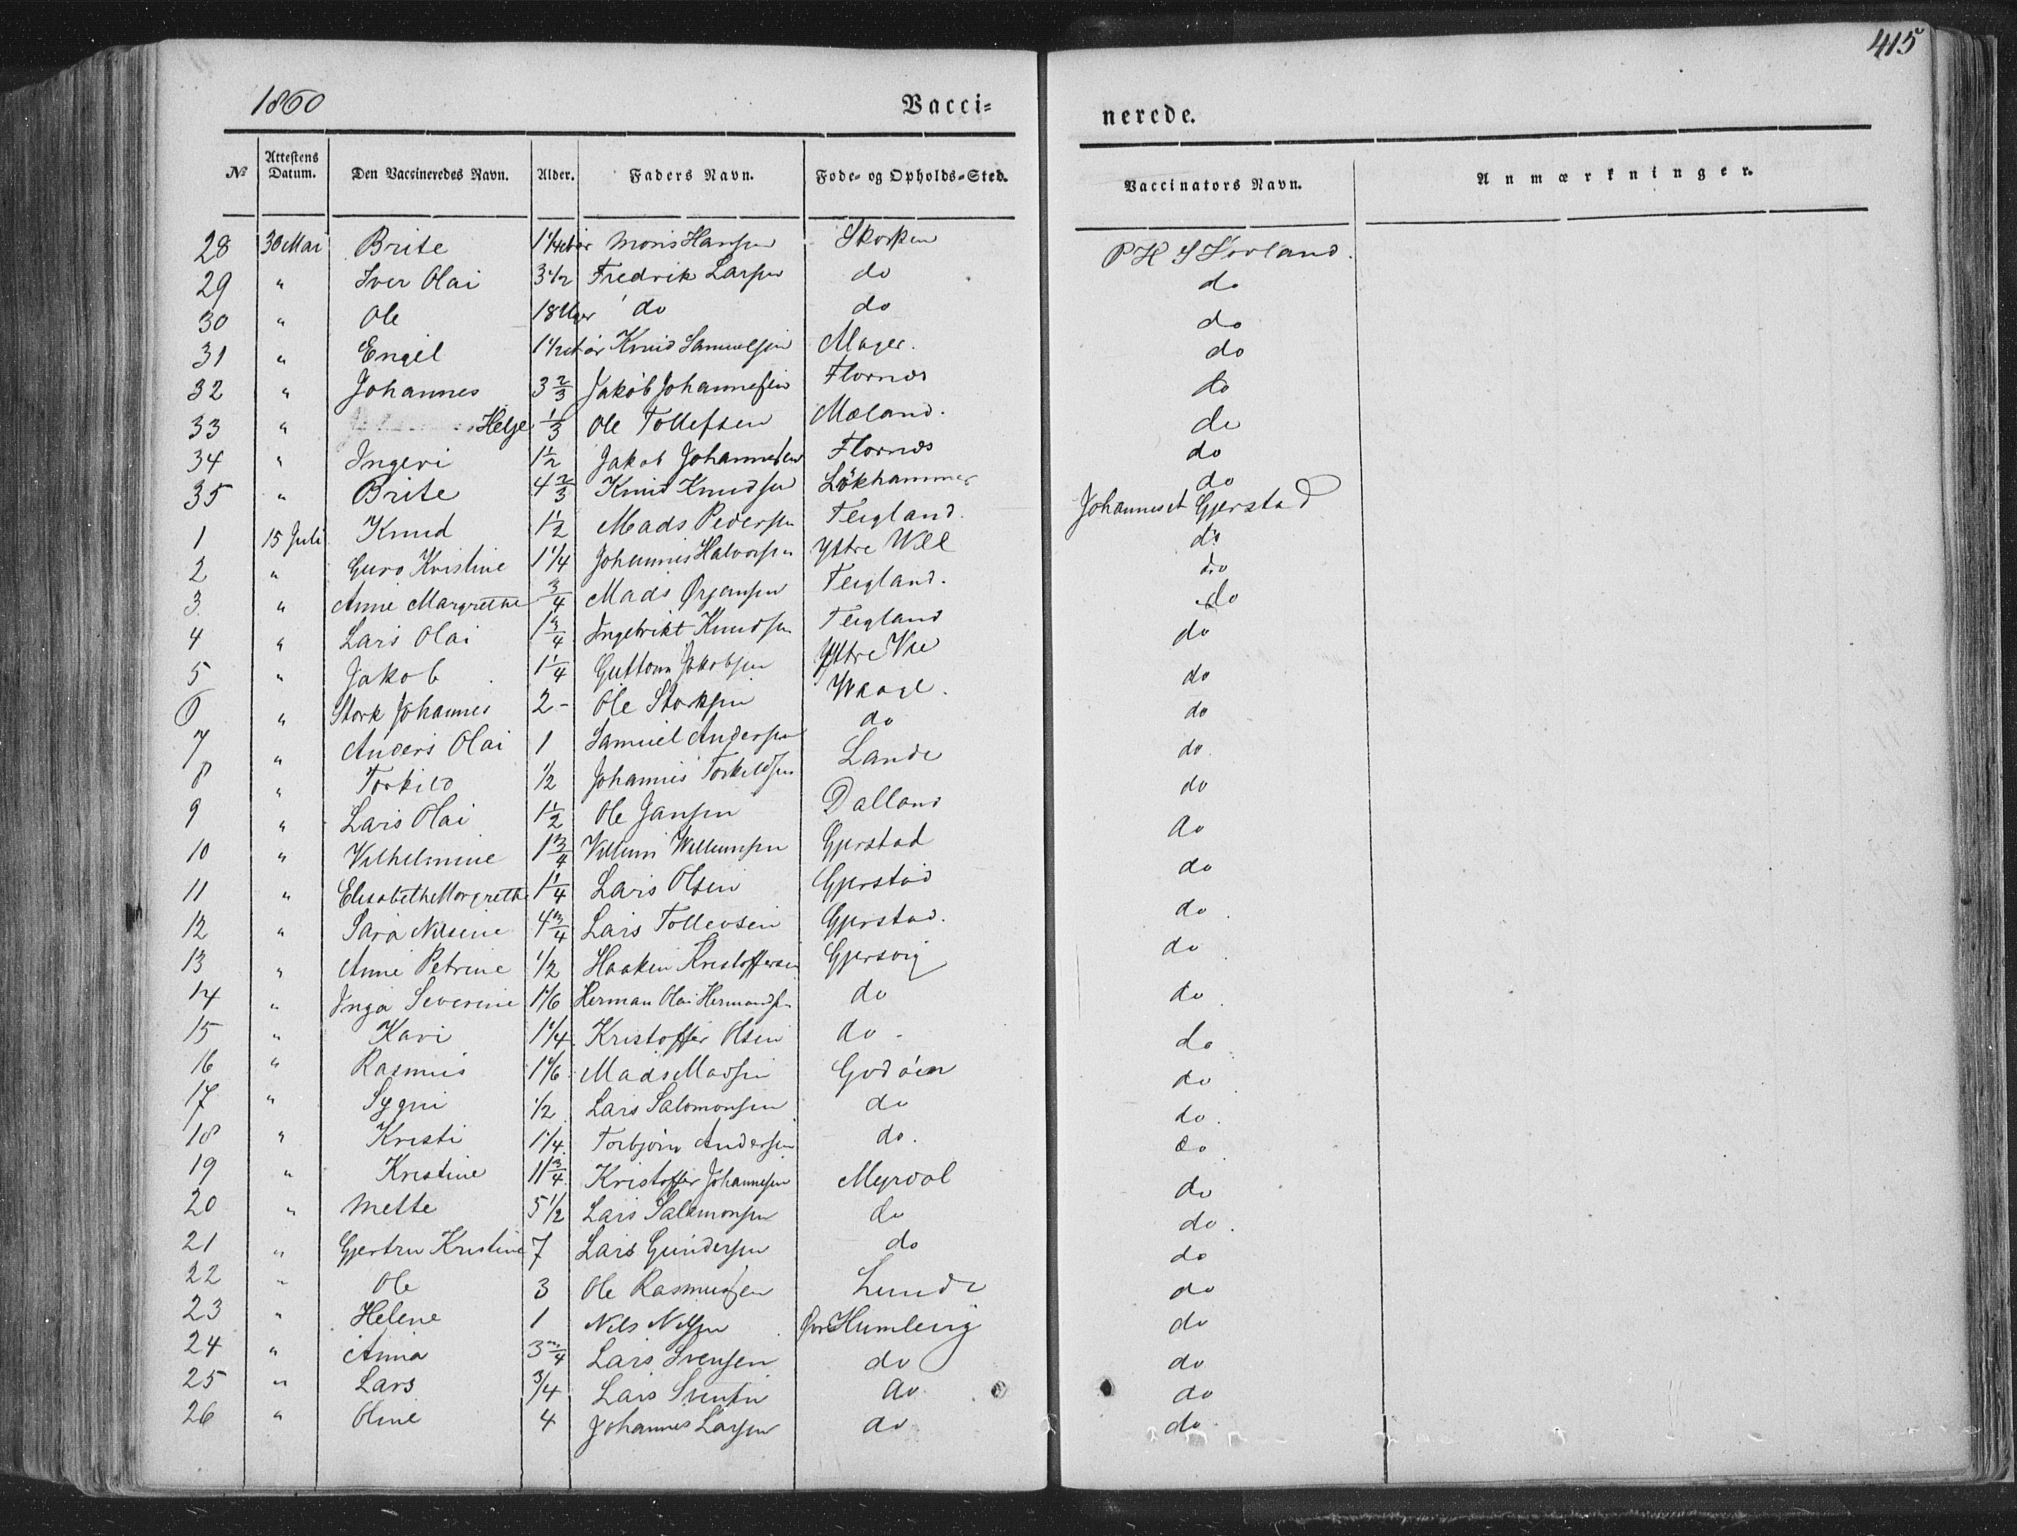 415
1860 Vacci= nerede.
No Attestens Datum. Den Vaccineredes Navn. Alder. Faders Navn. Føde- og Opholds-Sted. Vaccinators Navn. Anmærkninger.
28 30 Mai Brite 1 1/4 Hansen Skorpen P H S
29 " Iver Olai 3 1/2 Fredrik Larsen do do
30 " Ole 18 Uger do do do
31 " Engel 1 1/2 Knud Samuelsen Mager. do
32 " Johannes 3 2/3 Jakob Johannesen Flornes do
33 " Helje 1/3 Ole Tollefsen Mæland. do
34 " Ingeri 1 1/2 Jakob Johannesen Flornes do
35 " Brite 4 2/3 Knud Knudsen Lökhammer do
1 15 Juli Knud 1 1/2 Mads Pedersen Teigland. Johannes Gjerstad
2 " Guro Kristine 1 1/4 Johannes Halvorsen Ystre do
3. " Anne Margrethe 3/4 Mads Ørjansen Teigland. do
4 " Lars Olai 1 3/4 Ingebrikt Knudsen Teigland do
5 " Jakob 1 1/4 Guttorm Jakobsen Ystre do
6 " Stork Johannes 2 - Ole Storksen Waage. do
7 " Anders Olai 1 Samuel Andersen do do
8 " Torkild 1/2 Johannes Torkildsen Lande do.
9 " Lars Olai 1 1/2 Ole Jansen Dalland do
10 " Vilhelmine 1 3/4 Villum Willumsen Gjerstad do
11 " Elisabeth Margrethe 1 1/4 Lars Olsen Gjerstad do
12 " Sara Nilsine 4 3/4 Lars Tollevsen Gjerstad. do.
13 " Anne Petrine 1/2 Haaken Kristoffersen Gjersvig do.
14 " Inga Severine 1 1/6 Herman Olai Hermandsen do do.
15 " Kari 1 1/4 Kristoffer Olsen do - do.
16 " Rasmus 1 1/6 Mads Madsen Godøen do.
17 " Sygni 1/2 Lars Salomonsen do do.
18 " Kristi 1 1/4 Torbjørn Andersen do. do.
19 " Kristine 11 3/4 Kristoffer Johannesen Myrdal do
20 " Mette 5 1/2 Lars Salomonsen do do.
21 " Gjertru Kristine 7 Lars Gundersen do do
22 " Ole 3 Ole Rasmussen Lunde do
23 " Helene 1 Nils Nilsen Humlevig do
24 " Anna 3 3/4 Lars Svensen do do
25 " Lars 3/4 Lars Svensen do. do
26 " Oline 4 Johannes Larsen do do